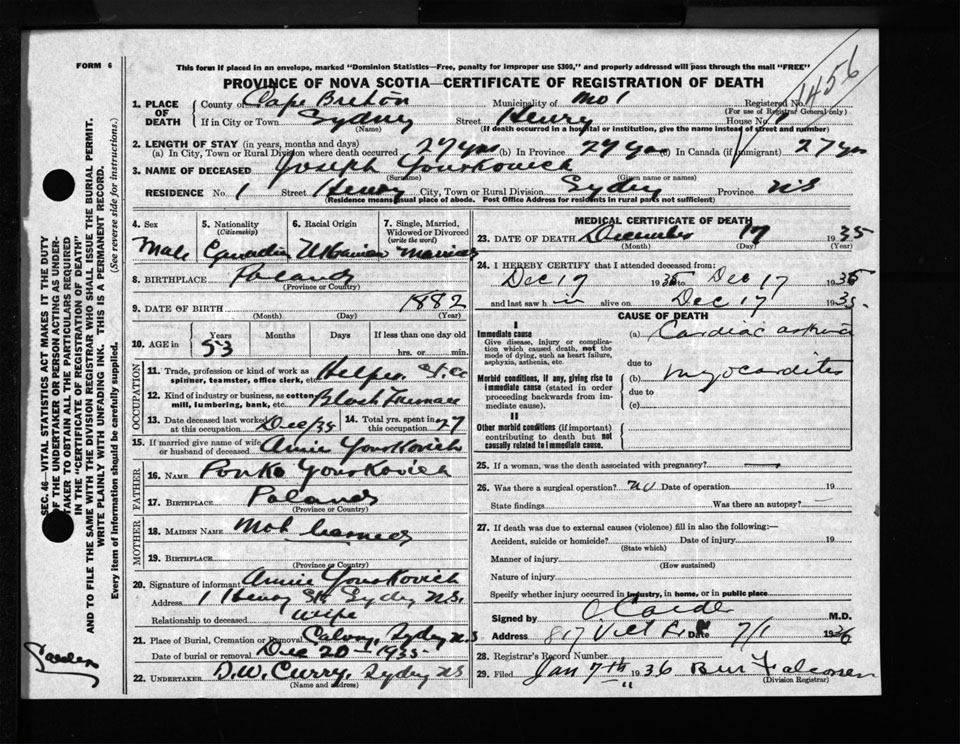 FORM 6
This form if placed in an envelope, marked "Dominion Statistics—Free, penalty for improper use $300," and properly addressed will pass through the mail "FREE"
PROVINCE OF NOVA SCOTIA—CERTIFICATE OF REGISTRATION OF DEATH
1456
1. PLACE OF DEATH
County of Cape Breton Municipality of No 1 Registered No.
(For use of Registrar General only)
If in City or Town Sydney Street Henry House No.
(Name) (If death occurred in a hospital or institution, give the name instead of street and number)
2. LENGTH OF STAY (in years, months and days)
(a) In City, Town or Rural Division where death occurred 27 yrs (b) In Province 27 yrs (c) In Canada (if immigrant) 27 yrs
3. NAME OF DECEASED Joseph Yourkovich
(Surname) (Given name or names)
RESIDENCE No. 1 Street Henry City, Town or Rural Division Sydney Province NS
(Residence means usual place of abode. Post Office Address for residents in rural parts not sufficient)
4. Sex Male
5. Nationality (Citizenship) Canadian
6. Racial Origin Ukrainian
7. Single, Married, Widowed or Divorced (write the word) Married
8. BIRTHPLACE Poland
(Province or Country)
9. DATE OF BIRTH 1882
(Month) (Day) (Year)
10. AGE in Years 53 Months Days If less than one day old
hrs. or min.
OCCUPATION
11. Trade, profession or kind of work as spinner, teamster, office clerk, etc. Helper
12. Kind of industry or business, as cotton mill, lumbering, bank, etc. Blast Furnace
13. Date deceased last worked at this occupation Dec/35
14. Total yrs. spent in this occupation 27
15. If married give name of wife or husband of deceased Annie Yourkovich
FATHER
16. NAME Ponko Yourkovich
17. BIRTHPLACE Poland
(Province or Country)
MOTHER
18. MAIDEN NAME Not learned
19. BIRTHPLACE
(Province or Country)
20. Signature of informant Annie Yourkovich
Address 1 Henry St Sydney N.S.
Relationship to deceased wife
21. Place of Burial, Cremation or Removal Calvary, Sydney N.S
Date of burial or removal Dec 20 - 1935
22. UNDERTAKER D.W. Curry, Sydney NS
(Name and address)
MEDICAL CERTIFICATE OF DEATH
23. DATE OF DEATH December 17 1935
(Month) (Day) (Year)
24. I HEREBY CERTIFY that I attended deceased from:
Dec 17 1935 to Dec 17 1935
and last saw h im alive on Dec 17 1935
CAUSE OF DEATH
I
Immediate cause
Give disease, injury or complication which caused death, not the mode of dying, such as heart failure, asphyxia, asthenia, etc.
(a) Cardiac asthma
due to
Morbid conditions, if any, giving rise to immediate cause (stated in order proceeding backwards from immediate cause).
(b) Myocarditis
due to
(c)
II
Other morbid conditions (if important) contributing to death but not causally related to immediate cause.
25. If a woman, was the death associated with pregnancy? —
26. Was there a surgical operation? no Date of operation 19
State findings Was there an autopsy? —
27. If death was due to external causes (violence) fill in also the following:—
Accident, suicide or homicide? Date of injury 19
(State which)
Manner of injury
(How sustained)
Nature of injury
Specify whether injury occurred in industry, in home, or in public place
Signed by M.D.
Address 817 Vict Date 7/1 1936
28. Registrar's Record Number
29. Filed Jan 7th 1936 Falconer
(Division Registrar)
SEC. 46—VITAL STATISTICS ACT MAKES IT THE DUTY OF THE UNDERTAKER OR PERSON ACTING AS UNDERTAKER TO OBTAIN ALL THE PARTICULARS REQUIRED IN THE "CERTIFICATE OF REGISTRATION OF DEATH" AND TO FILE THE SAME WITH THE DIVISION REGISTRAR WHO SHALL ISSUE THE BURIAL PERMIT.
WRITE PLAINLY WITH UNFADING INK. THIS IS A PERMANENT RECORD.
Every item of information should be carefully supplied. (See reverse side for instructions.)